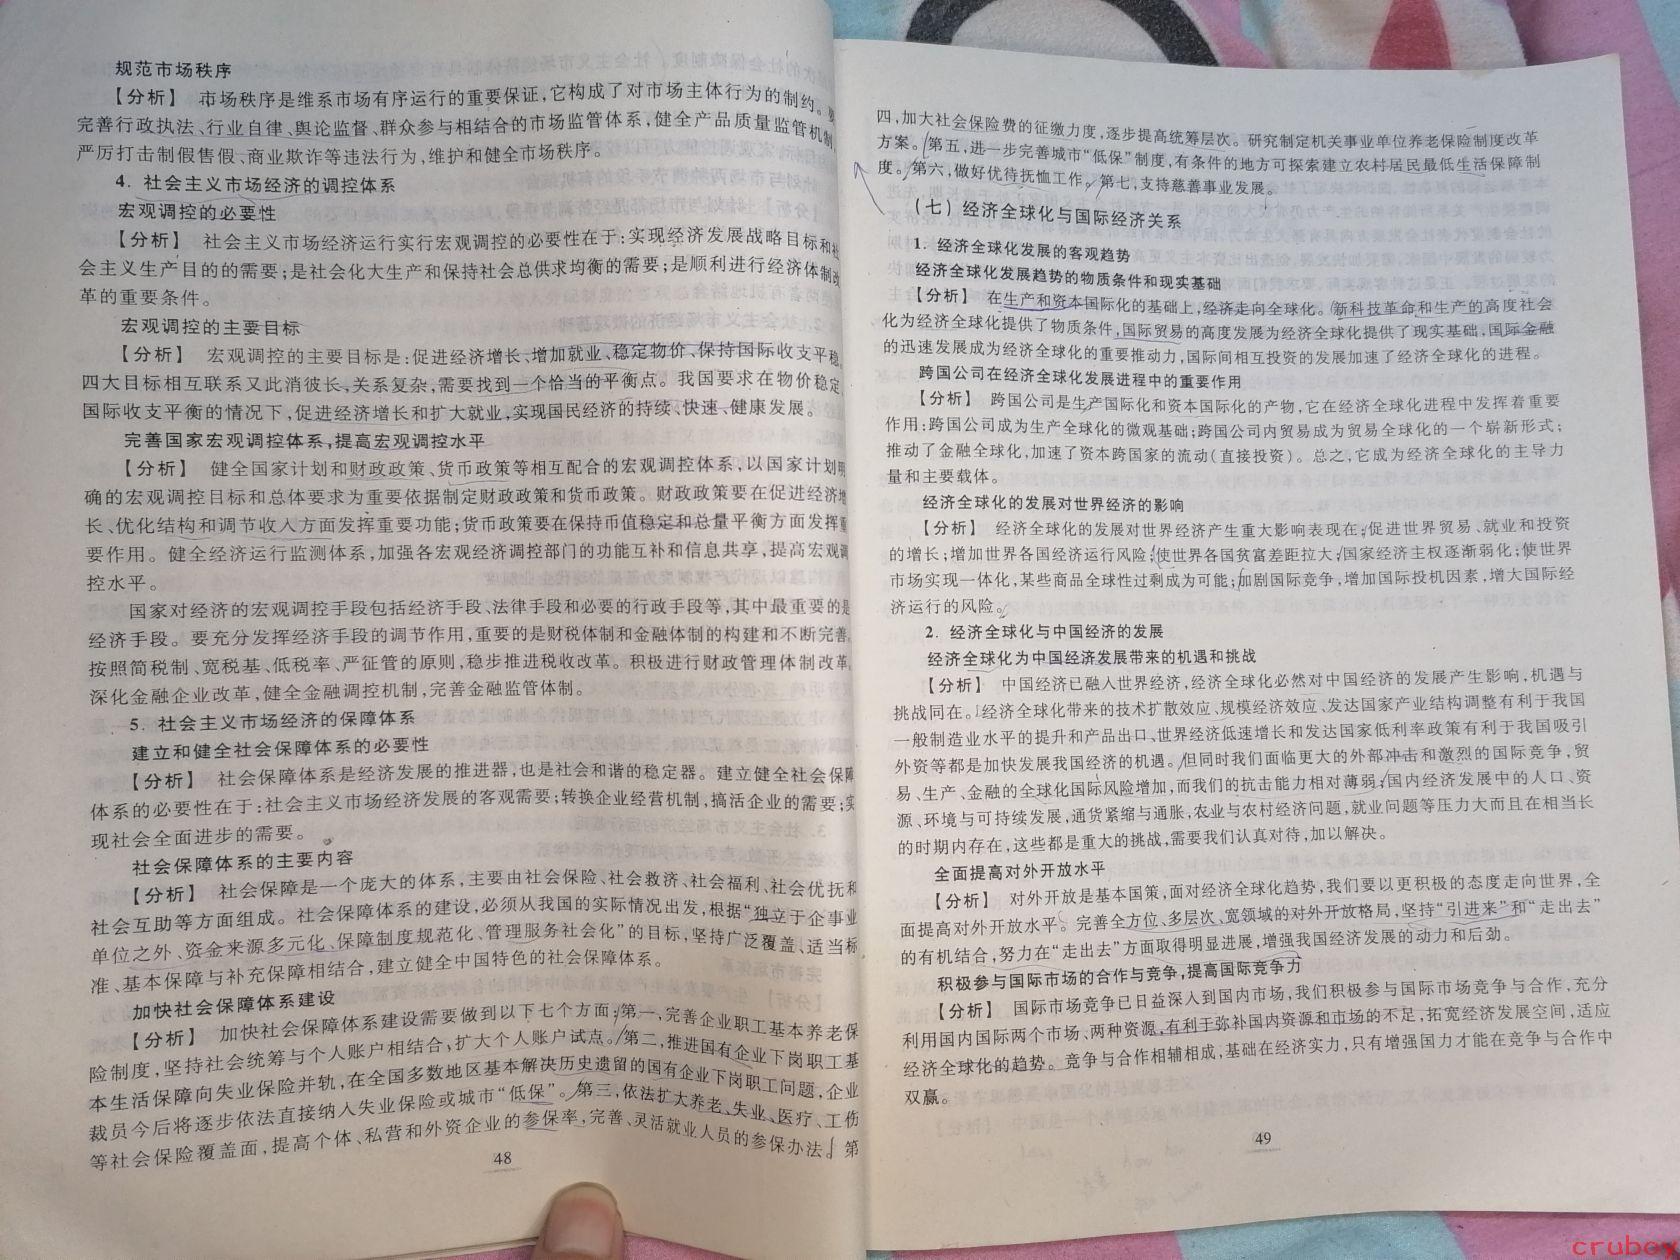 规范市场秩序
【分析】 市场秩序是维系市场有序运行的重要保证,它构成了对市场主体行为的制约。
完善行政执法、行业自律、舆论监督、群众参与相结合的市场监管体系,健全产品质量监管机制,
严厉打击制假售假、商业欺诈等违法行为,维护和健全市场秩序。
4. 社会主义市场经济的调控体系
宏观调控的必要性
【分析】 社会主义市场经济运行实行宏观调控的必要性在于:实现经济发展战略目标和社
会主义生产目的的需要;是社会化大生产和保持社会总供求均衡的需要;是顺利进行经济体制改
革的重要条件。
宏观调控的主要目标
【分析】 宏观调控的主要目标是:促进经济增长、增加就业、稳定物价、保持国际收支平稳。
四大目标相互联系又此消彼长,关系复杂,需要找到一个恰当的平衡点。我国要求在物价稳定、
国际收支平衡的情况下,促进经济增长和扩大就业,实现国民经济的持续、快速、健康发展。
完善国家宏观调控体系,提高宏观调控水平
【分析】 健全国家计划和财政政策、货币政策等相互配合的宏观调控体系,以国家计划明
确的宏观调控目标和总体要求为重要依据制定财政政策和货币政策。财政政策要在促进经济增
长、优化结构和调节收入方面发挥重要功能;货币政策要在保持币值稳定和总量平衡方面发挥重
要作用。健全经济运行监测体系,加强各宏观经济调控部门的功能互补和信息共享,提高宏观调
控水平。
国家对经济的宏观调控手段包括经济手段、法律手段和必要的行政手段等,其中最重要的是
经济手段。要充分发挥经济手段的调节作用,重要的是财税体制和金融体制的构建和不断完善。
按照简税制、宽税基、低税率、严征管的原则,稳步推进税收改革。积极进行财政管理体制改革。
深化金融企业改革,健全金融调控机制,完善金融监管体制。
5. 社会主义市场经济的保障体系
建立和健全社会保障体系的必要性
【分析】 社会保障体系是经济发展的推进器,也是社会和谐的稳定器。建立健全社会保障
体系的必要性在于:社会主义市场经济发展的客观需要;转换企业经营机制,搞活企业的需要;实
现社会全面进步的需要。
社会保障体系的主要内容
【分析】 社会保障是一个庞大的体系,主要由社会保险、社会救济、社会福利、社会优抚和
社会互助等方面组成。社会保障体系的建设,必须从我国的实际情况出发,根据“独立于企事业
单位之外、资金来源多元化、保障制度规范化、管理服务社会化”的目标,坚持广泛覆盖、适当标
准、基本保障与补充保障相结合,建立健全中国特色的社会保障体系。
加快社会保障体系建设
【分析】 加快社会保障体系建设需要做到以下七个方面:第一,完善企业职工基本养老保
险制度,坚持社会统筹与个人账户相结合,扩大个人账户试点。第二,推进国有企业下岗职工基
本生活保障向失业保险并轨,在全国多数地区基本解决历史遗留的国有企业下岗职工问题,企业
裁员今后将逐步依法直接纳入失业保险或城市“低保”。第三,依法扩大养老、失业、医疗、工伤
等社会保险覆盖面,提高个体、私营和外资企业的参保率,完善、灵活就业人员的参保办法。第
48
四,加大社会保险费的征缴力度,逐步提高统筹层次。研究制定机关事业单位养老保险制度改革
方案。第五,进一步完善城市“低保”制度,有条件的地方可探索建立农村居民最低生活保障制
度。第六,做好优待抚恤工作。第七,支持慈善事业发展。
(七)经济全球化与国际经济关系
1. 经济全球化发展的客观趋势
经济全球化发展趋势的物质条件和现实基础
【分析】 在生产和资本国际化的基础上,经济走向全球化。新科技革命和生产的高度社会
化为经济全球化提供了物质条件,国际贸易的高度发展为经济全球化提供了现实基础,国际金融
的迅速发展成为经济全球化的重要推动力,国际间相互投资的发展加速了经济全球化的进程。
跨国公司在经济全球化发展进程中的重要作用
【分析】 跨国公司是生产国际化和资本国际化的产物,它在经济全球化进程中发挥着重要
作用:跨国公司成为生产全球化的微观基础;跨国公司内贸易成为贸易全球化的一个崭新形式;
推动了金融全球化,加速了资本跨国家的流动(直接投资)。总之,它成为经济全球化的主导力
量和主要载体。
经济全球化的发展对世界经济的影响
【分析】 经济全球化的发展对世界经济产生重大影响表现在:促进世界贸易、就业和投资
的增长;增加世界各国经济运行风险;使世界各国贫富差距拉大;国家经济主权逐渐弱化;使世界
市场实现一体化,某些商品全球性过剩成为可能;加剧国际竞争,增加国际投机因素,增大国际经
济运行的风险。
2. 经济全球化与中国经济的发展
经济全球化为中国经济发展带来的机遇和挑战
【分析】 中国经济已融入世界经济,经济全球化必然对中国经济的发展产生影响,机遇与
挑战同在。经济全球化带来的技术扩散效应、规模经济效应、发达国家产业结构调整有利于我国
一般制造业水平的提升和产品出口、世界经济低速增长和发达国家低利率政策有利于我国吸引
外资等都是加快发展我国经济的机遇。但同时我们面临更大的外部冲击和激烈的国际竞争,贸
易、生产、金融的全球化国际风险增加,而我们的抗击能力相对薄弱;国内经济发展中的人口、资
源、环境与可持续发展,通货紧缩与通胀,农业与农村经济问题,就业问题等压力大而且在相当长
的时期内存在,这些都是重大的挑战,需要我们认真对待,加以解决。
全面提高对外开放水平
【分析】 对外开放是基本国策,面对经济全球化趋势,我们要以更积极的态度走向世界,全
面提高对外开放水平。完善全方位、多层次、宽领域的对外开放格局,坚持“引进来”和“走出去”
的有机结合,努力在“走出去”方面取得明显进展,增强我国经济发展的动力和后劲。
积极参与国际市场的合作与竞争,提高国际竞争力
【分析】 国际市场竞争已日益深入到国内市场,我们积极参与国际市场竞争与合作,充分
利用国内国际两个市场、两种资源,有利于弥补国内资源和市场的不足,拓宽经济发展空间,适应
经济全球化的趋势。竞争与合作相辅相成,基础在经济实力,只有增强国力才能在竞争与合作中
双赢。
49
crubox